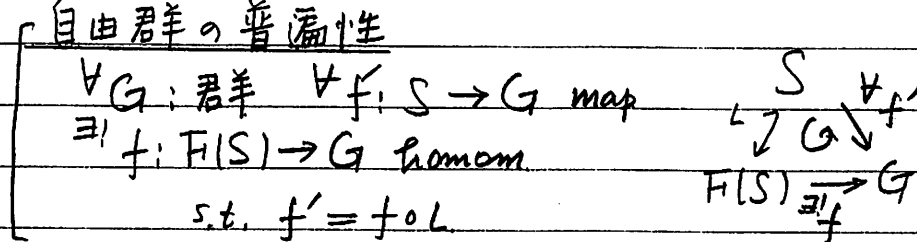 自由群の普遍性
∀G:群 ∀f':S→G map
∃!f:F(S)→G homom
s.t. f'=f∘ι
S
ι ↺ ∀f'
F(S) → G
∃!f